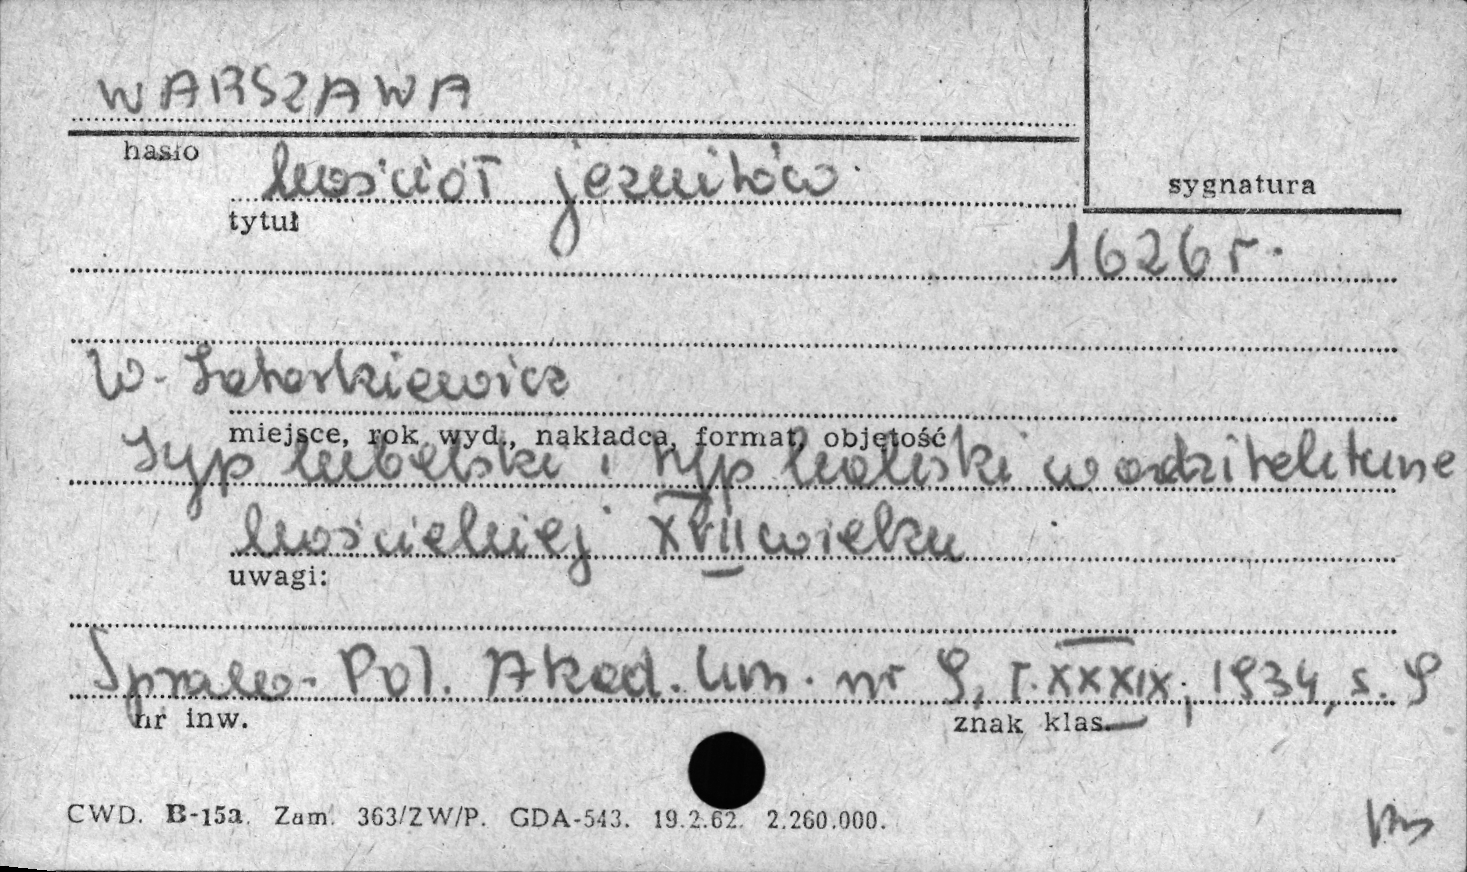 WARSZAWA
hasło
kościół jezuitów.
sygnatura
tytuł
1626 r.
W. Tatarkiewicz
miejsce, rok wyd., nakładca, format, objętość
Typ lubelski i typ kaliski w architekturze
kościelnej XVII wieku
uwagi:
Spraw. Pol. Akad. Um. nr 9, T. XXXIX, 1934, s. 9
nr inw.
znak klas.
CWD. B-15a. Zam. 363/ZW/P. GDA-543. 19.2.62. 2.260.000.